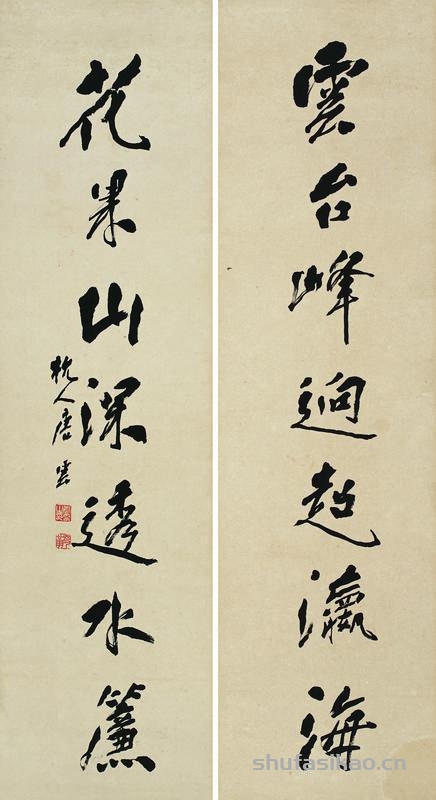 雲台峰迥超瀛海
花果山深透水簾
杭人唐雲
shufasikao.cn